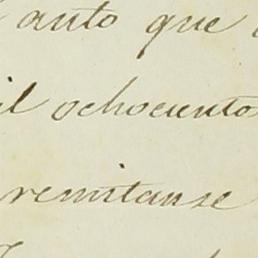 anto que
il ochociento
remitanse